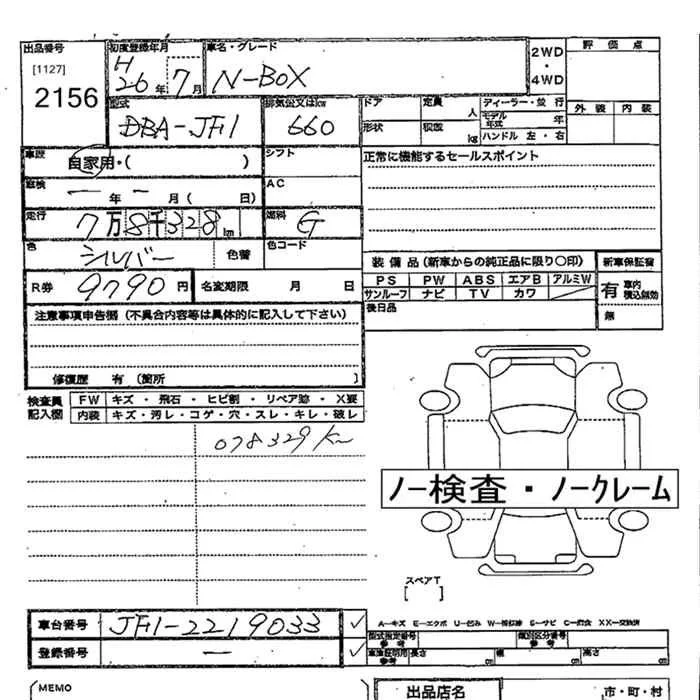 出品番号
[1127]
2156
初度登録年月
H
26年7月
車名・グレード
N-BOX
2WD
・
4WD
評価点
外装 内装
型式
DBA-JF1
排気公文はkw
660
ドア
形状
定員 人
積載 kg
ディーラー・並行
モデル年式 年
ハンドル 左・右
車歴
自家用・( )
シフト
正常に機能するセールスポイント
車検
ー年ー月( 日)
AC
走行
7万8千328km
燃料
G
色
シルバー
色替
色コード
装備品(新車からの純正品に限り○印)
新車保証書
PS PW ABS エアB アルミW
サンルーフ ナビ TV カワ
有 車内積込無効
無
後日品
R券
9790円
名変期限 月 日
注意事項申告欄(不具合内容等は具体的に記入して下さい)
修復歴 有〔箇所 〕
検査員記入欄
FW キズ・飛石・ヒビ割・リペア跡・X要
内装 キズ・汚レ・コゲ・穴・スレ・キレ・破レ
078329Km
ノー検査・ノークレーム
スペアT
[ ]
車台番号
JF1-2219033
✓
登録番号
ー
✓
A-キズ E-エクボ U-凹み S-サビ C-腐食 XX-交換済
型式指定番号
参考
類別区分番号
参考
参考
長さ cm
幅 cm
高さ cm
MEMO
出品店名
市・町・村